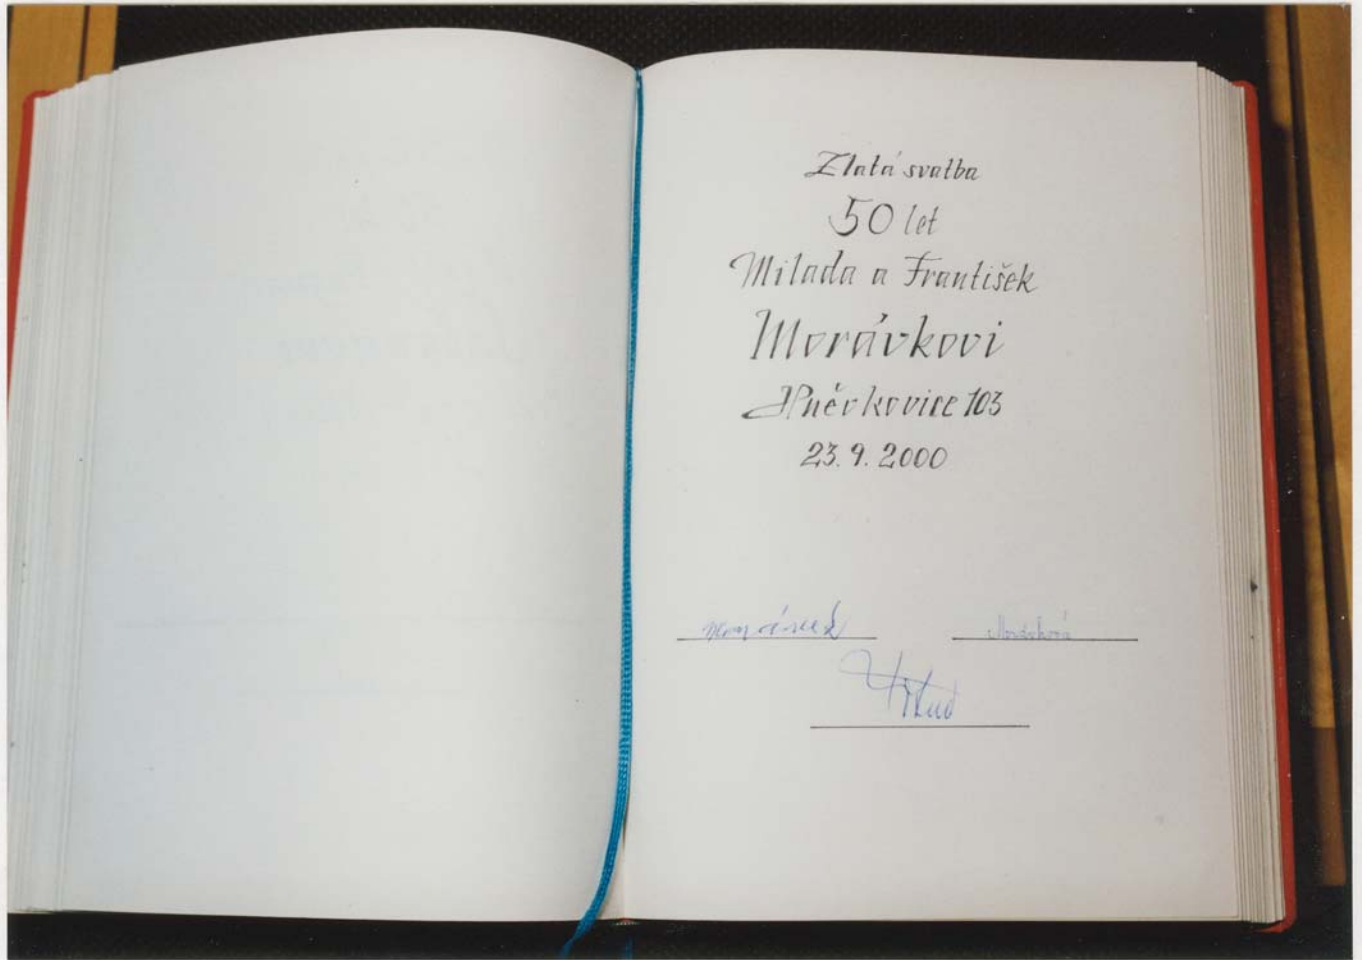 Zlatá svatba
50 let
Milada a František
Morávkovi
103
23.9.2000
Morávek Morávková